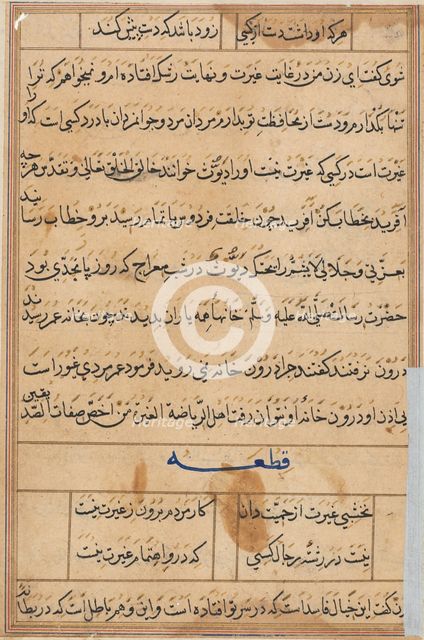 هر که او را نشد دست از کسی زود باشد که دست پیش کند
شوی گفت ای زن من در غایت غیرت و نهایت رشک افتاده ام و نمیخواهم که ترا
تنها بگذارم و دست از محافظت تو بدارم مردان مرد و جوانمردان با درد کسی است که او را
غیرت است در کسی که غیرت نیست او را دیوث خوانند خالق الخلق تعالی و تقدس هرچه
آفرید بخطاب کن آفرید چون خلقت فردوس باتمام رسید برو خطاب رسانید
بعزتی و جلالی لا یشم رایحتک دیوث در شب معراج که روز بازار بود
حضرت رسالت صلی الله علیه و سلم خانها همه یاران بدیدند چون بخانه عمر رسیدند
درون نرفتند گفتند چرا درون خانه نمی روید فرمود عمر مردی غیور است
بی اذن او درون خانه او نتوان رفت اهل الریاضة الغیرة من اخص صفات الصدیقین
قطعه
نخشبی غیرت از حمیت دان کار مردم برون ز غیرت نیست
نیست در رشته رجال کسی که درو اهتمام غیرت نیست
زن گفت این خیال فاسد است که در سر تو افتاده است و این وهم باطل است که در